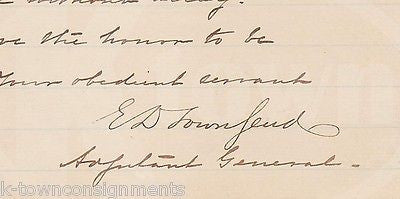 without delay.
the honor to be
Your obedient servant
E D Townsend
Adjutant General.
k-townconsignments